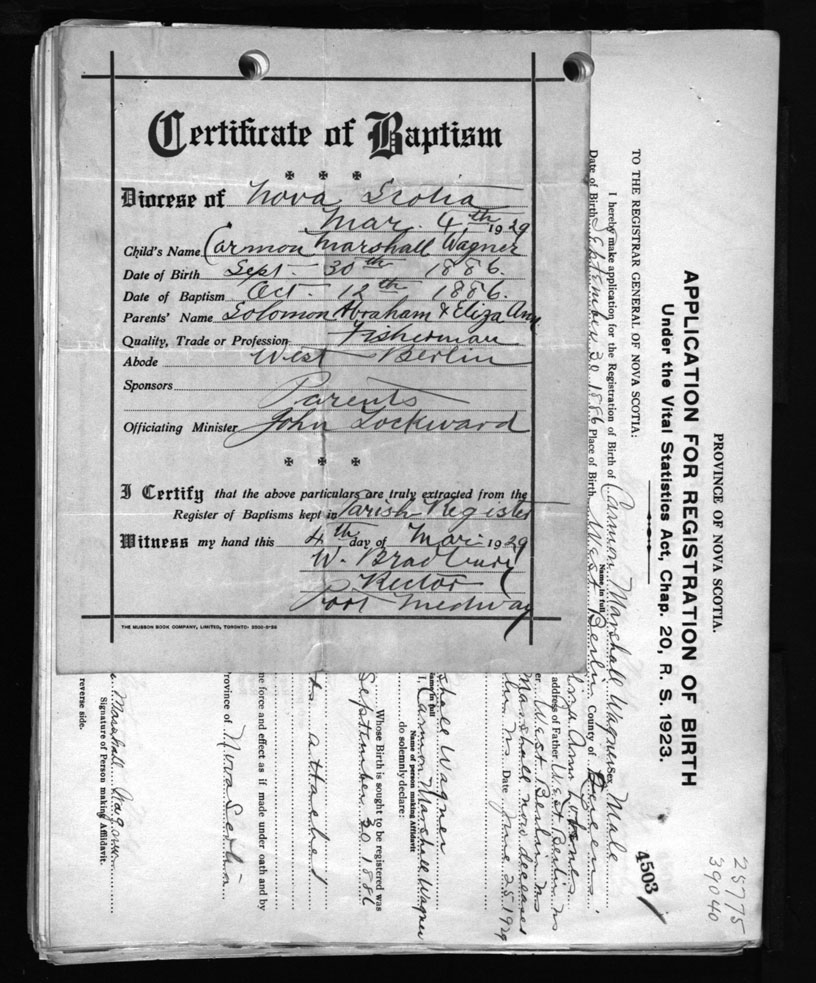 Certificate of Baptism
Diocese of Nova Scotia
Mar. 4th 1929
Child's Name Carmon Marshall Wagner
Date of Birth Sept. 30th 1886.
Date of Baptism Oct. 12th 1886.
Parents' Name Solomon Abraham & Eliza Ann
Quality, Trade or Profession Fisherman
Abode West Berlin
Sponsors
Parents
Officiating Minister John Lockward
I Certify that the above particulars are truly extracted from the
Register of Baptisms kept in Parish Register
Witness my hand this 4th day of Mar. 1929
W. Bradbury
Rector
Port Medway
THE MUSSON BOOK COMPANY, LIMITED, TORONTO
25775
39040
4503
PROVINCE OF NOVA SCOTIA.
APPLICATION FOR REGISTRATION OF BIRTH
Under the Vital Statistics Act, Chap. 20, R. S. 1923.
TO THE REGISTRAR GENERAL OF NOVA SCOTIA:
I hereby make application for the Registration of Birth of Carmon Marshall Wagner Sex Male
Name in full
Date of Birth September 30 1886 Place of Birth West Berlin County of Queens
Ann
address of Father West Berlin NS
West Berlin NS
Marshall now deceased
Date June 25 1929
shall Wagner
Name in full
I, Carmon Marshall Wagner
Name of person making Affidavit
do solemnly declare:
Whose Birth is sought to be registered was
September 30 1886
attached
me force and effect as if made under oath and by
rovince of Nova Scotia
Marshall Wagner
Signature of Person making Affidavit.
reverse side.